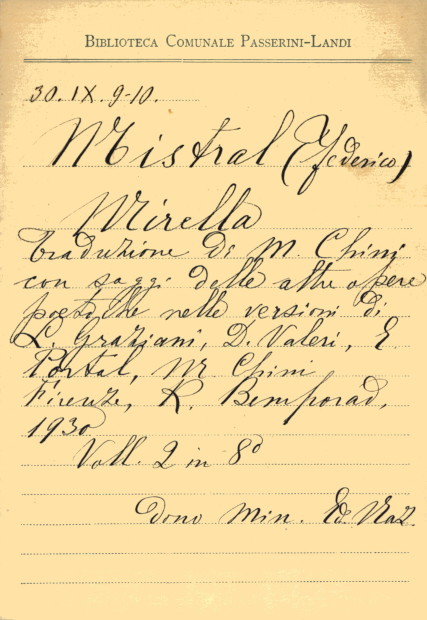 BIBLIOTECA COMUNALE PASSERINI-LANDI
30. IX. 9-10.
Mistral (Federico)
Mirella
traduzione di M. Chini
con saggi delle altre opere
poetiche nelle versioni di
L. Graziani, D. Valeri, E
Portal, M Chini
Firenze, R. Bemporad,
1930
Voll. 2 in 8°
Dono Min. Ed. Naz.